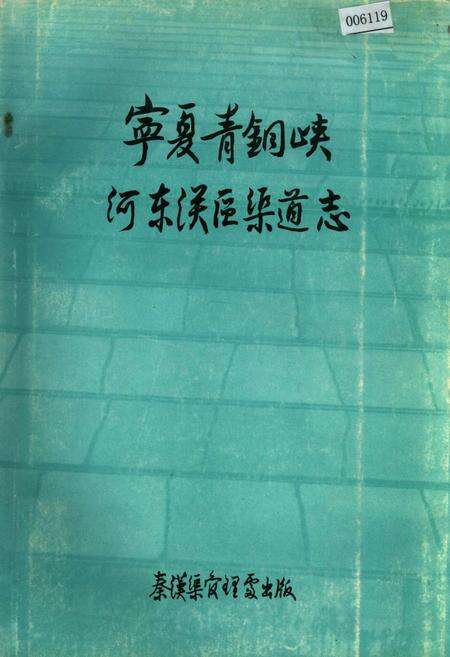 006119
寧夏青銅峡
河东灌区渠道志
秦漢渠管理處出版